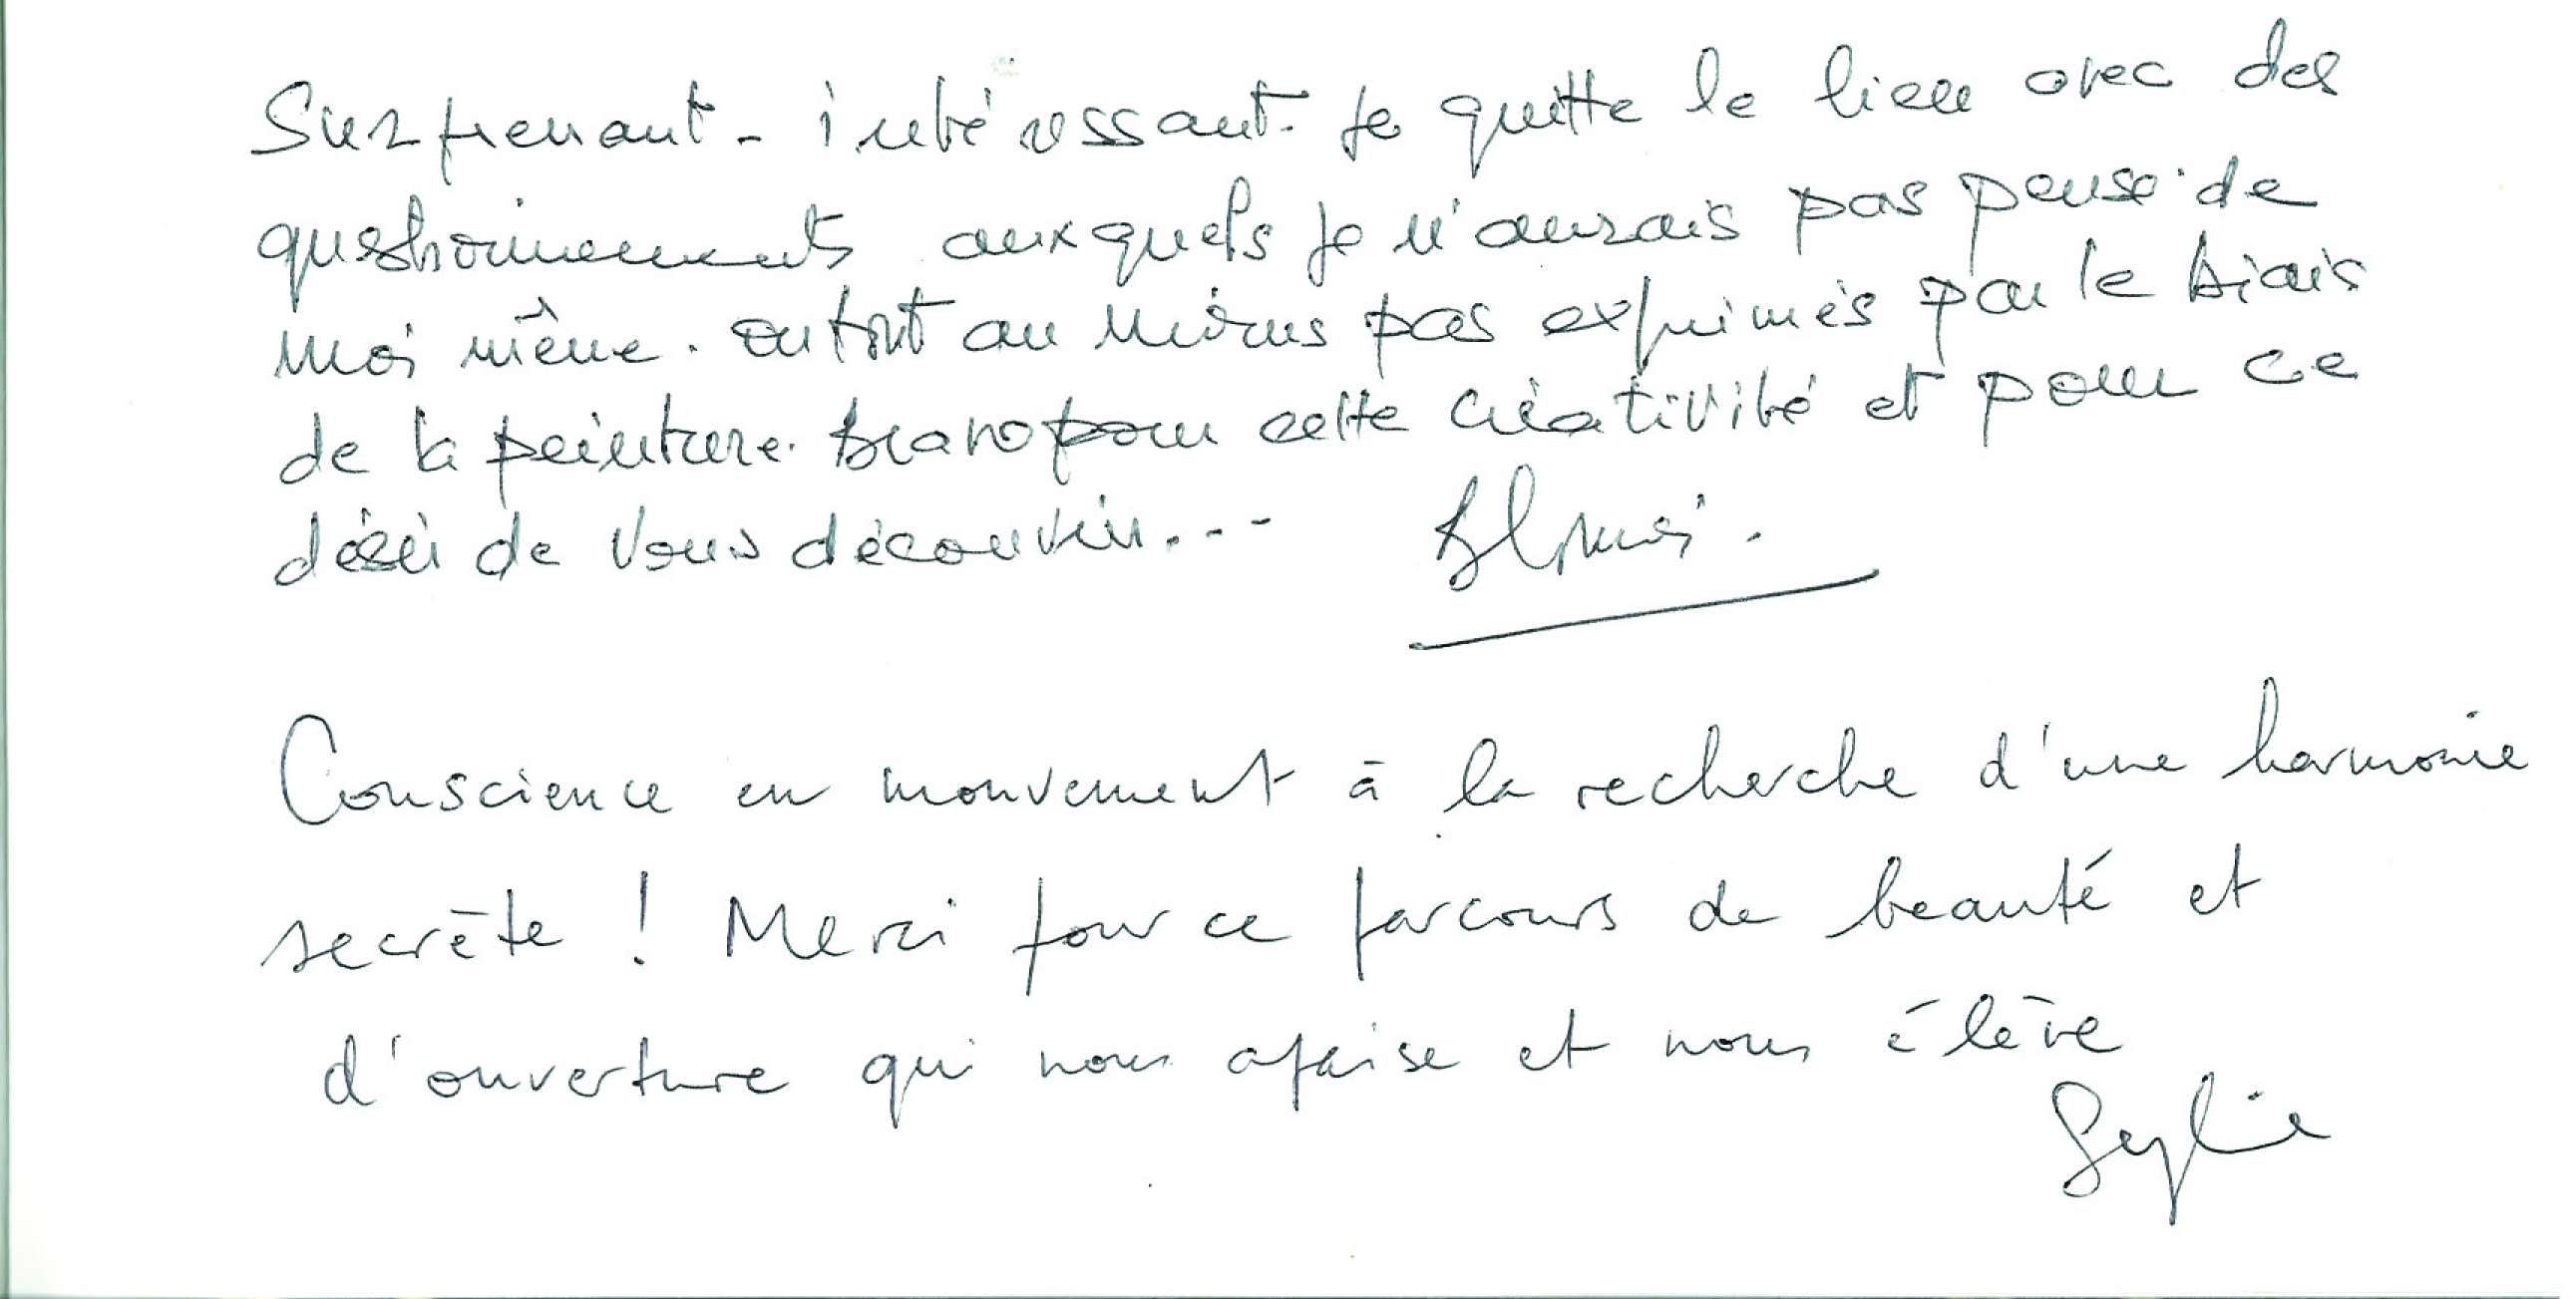 Surprenant - intéressant. Je quitte le lieu avec des
questionnements auxquels je n'aurais pas pensé de
moi même. ou tout au moins pas exprimés par le biais
de la peinture. Bravo pour cette créativité et pour ce
désir de vous découvrir...
Conscience en mouvement à la recherche d'une harmonie
secrète ! Merci pour ce parcours de beauté et
d'ouverture qui nous apaise et nous élève
Sylvie